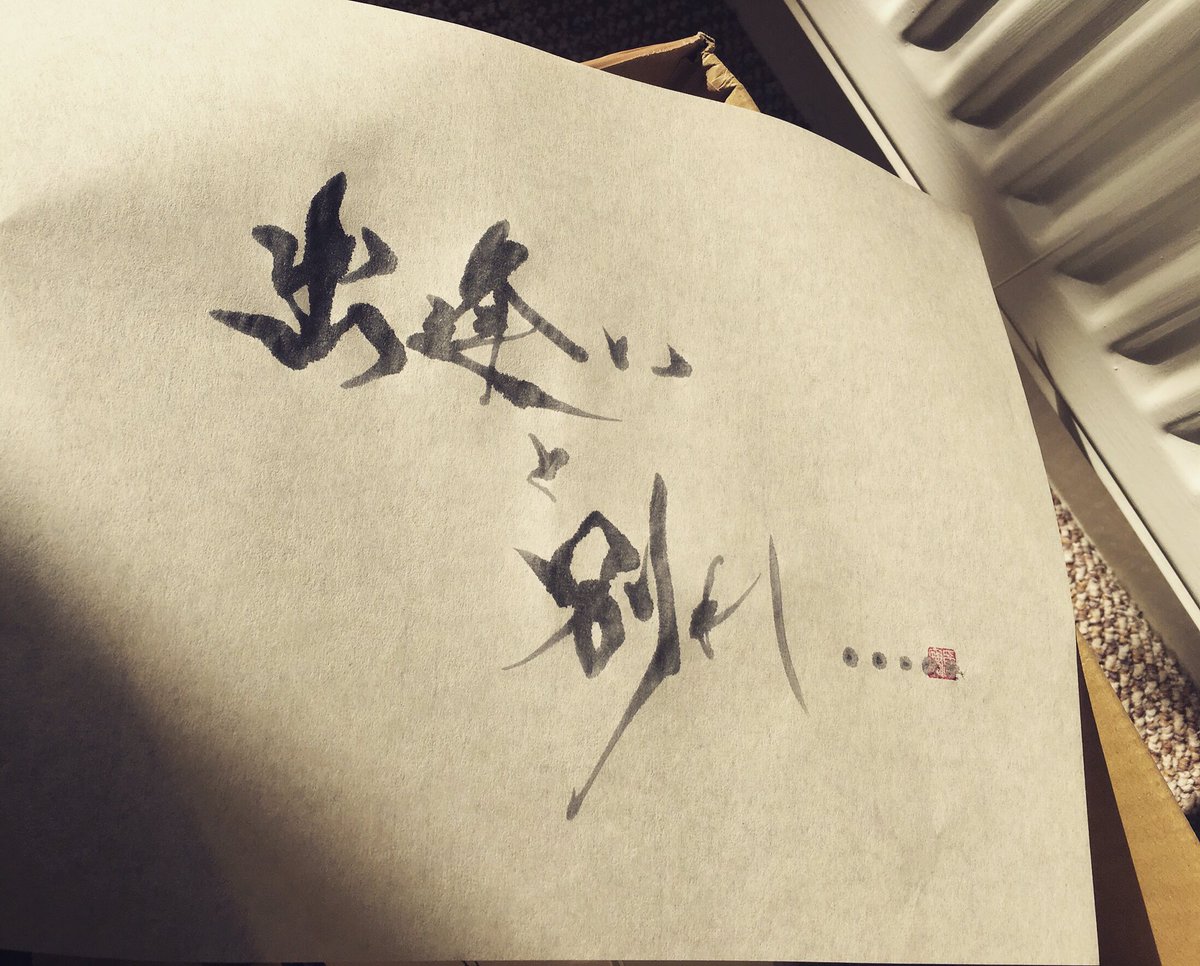 出逢い
と
別れ.....